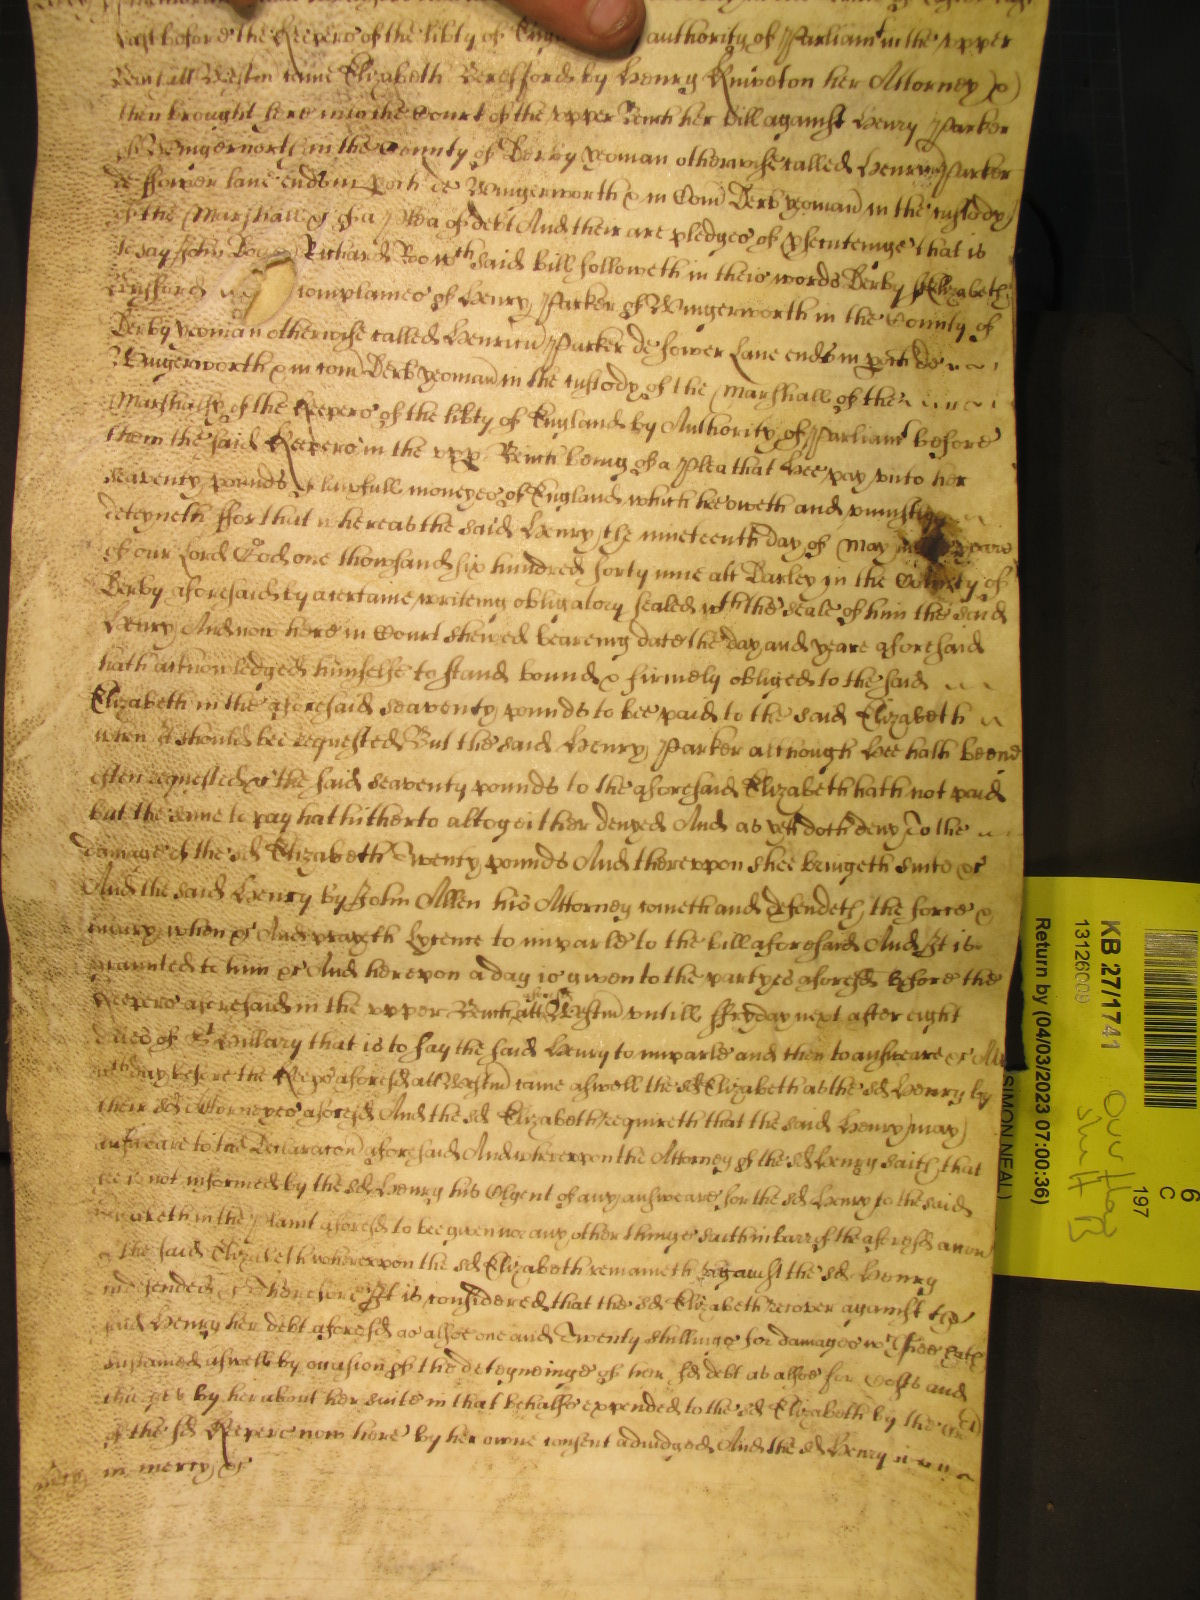 last before the Keepers of the libty of Engl authority of Parliamt in the upper
Bench att Westm came Elizabeth Beresford by Henry Kniveton her Attorney &
then brought here into the Court of the upper Bench her bill against Henry Parker
of Wingerworth in the County of Derby yeoman otherwise called Henry Parker
de flower lane ends in poch de Wingerworth & in Com Derb yeoman in the custody
of the Marshall &c of a Plea of debt And their are pledges of psecuteinge that is
to say John Doe Richard Roo wch said bill followeth in theis words Derby ss Elizabeth
complaines of Henry Parker of Wingerworth in the County of
Derby yeoman otherwise called Henricu Parker de flower Lane ends in poch de
Wingerworth & in com Derb yeoman in the custody of the Marshall of the
Marshalse of the Keepers of the libty of England by Authority of Parliamt before
them the said Keepers in the upp Bench being of a Plea that hee pay unto her
seaventy pounds of lawfull moneyes of England which hee oweth and uniustly
deteyneth ffor that whereas the said Henry the nineteenth day of May in yeare
of our Lord God one thowsand six hundred forty nine att Darley in the County of
Derby aforesaid by a certaine writeing obligatory sealed wth the seale of him the said
Henry And now here in Court shewed beareing date the day and yeare aforesaid
hath acknowledged himselfe to stand bound & firmely obliged to the said
Elizabeth in the aforesaid seaventy pounds to bee paid to the said Elizabeth
when it should bee requested But the said Henry Parker although hee hath beene
often requested &c the said seaventy pounds to the aforesaid Elizabeth hath not paid
but the same to pay hath hitherto altogeither denyed And as yett doth deny To the
damage of the sd Elizabeth Twenty pounds And thereupon shee bringeth suite &c
And the said Henry by John Allen his Attorney cometh and defendeth the force &
iniury when &c And prayeth Lycence to imparle to the bill aforesaid And It is
graunted to him &c And hereupon a day is given to the partyes aforesd before the
Keepers aforesaid in the upper Bench att Westm untill ffryday next after eight
daies of St Hillary that is to say the said Henry to imparle and then to answeare &c Att
wch day before the Keeps aforesd att Westm came aswell the sd Elizabeth as the sd Henry by
their sd Attorneyes aforesd And the sd Elizabeth requireth that the said Henry may
answeare to the Declaracon aforesaid And whereupon the Attorney of the sd Henry saith that
hee is not informed by the sd Henry his Clyent of any answeare for the sd Henry to the said
Elizabeth in the Plaint aforesd to bee given nor any other thinge saith in barr of the aforesd accon
of the said Elizabeth whereupon the sd Elizabeth remaineth against the sd Henry
undefended &c Therefore It is considered that the sd Elizabeth recover against the
said Henry her debt aforesd as alsoe one and Twenty shillings for damages wch shee hath
susteined aswell by occasion of the deteyneinge of her sd debt as alsoe for Costs and
charges by her about her suite in that behalfe expended to the sd Elizabeth by the Court
of the sd Keepers now here by her owne consent adiudged And the sd Henry
in mercy &c
KB 27/1741
13126009
Return by (04/03/2023 07:00:36)
SIMON NEAL)
6
C
197